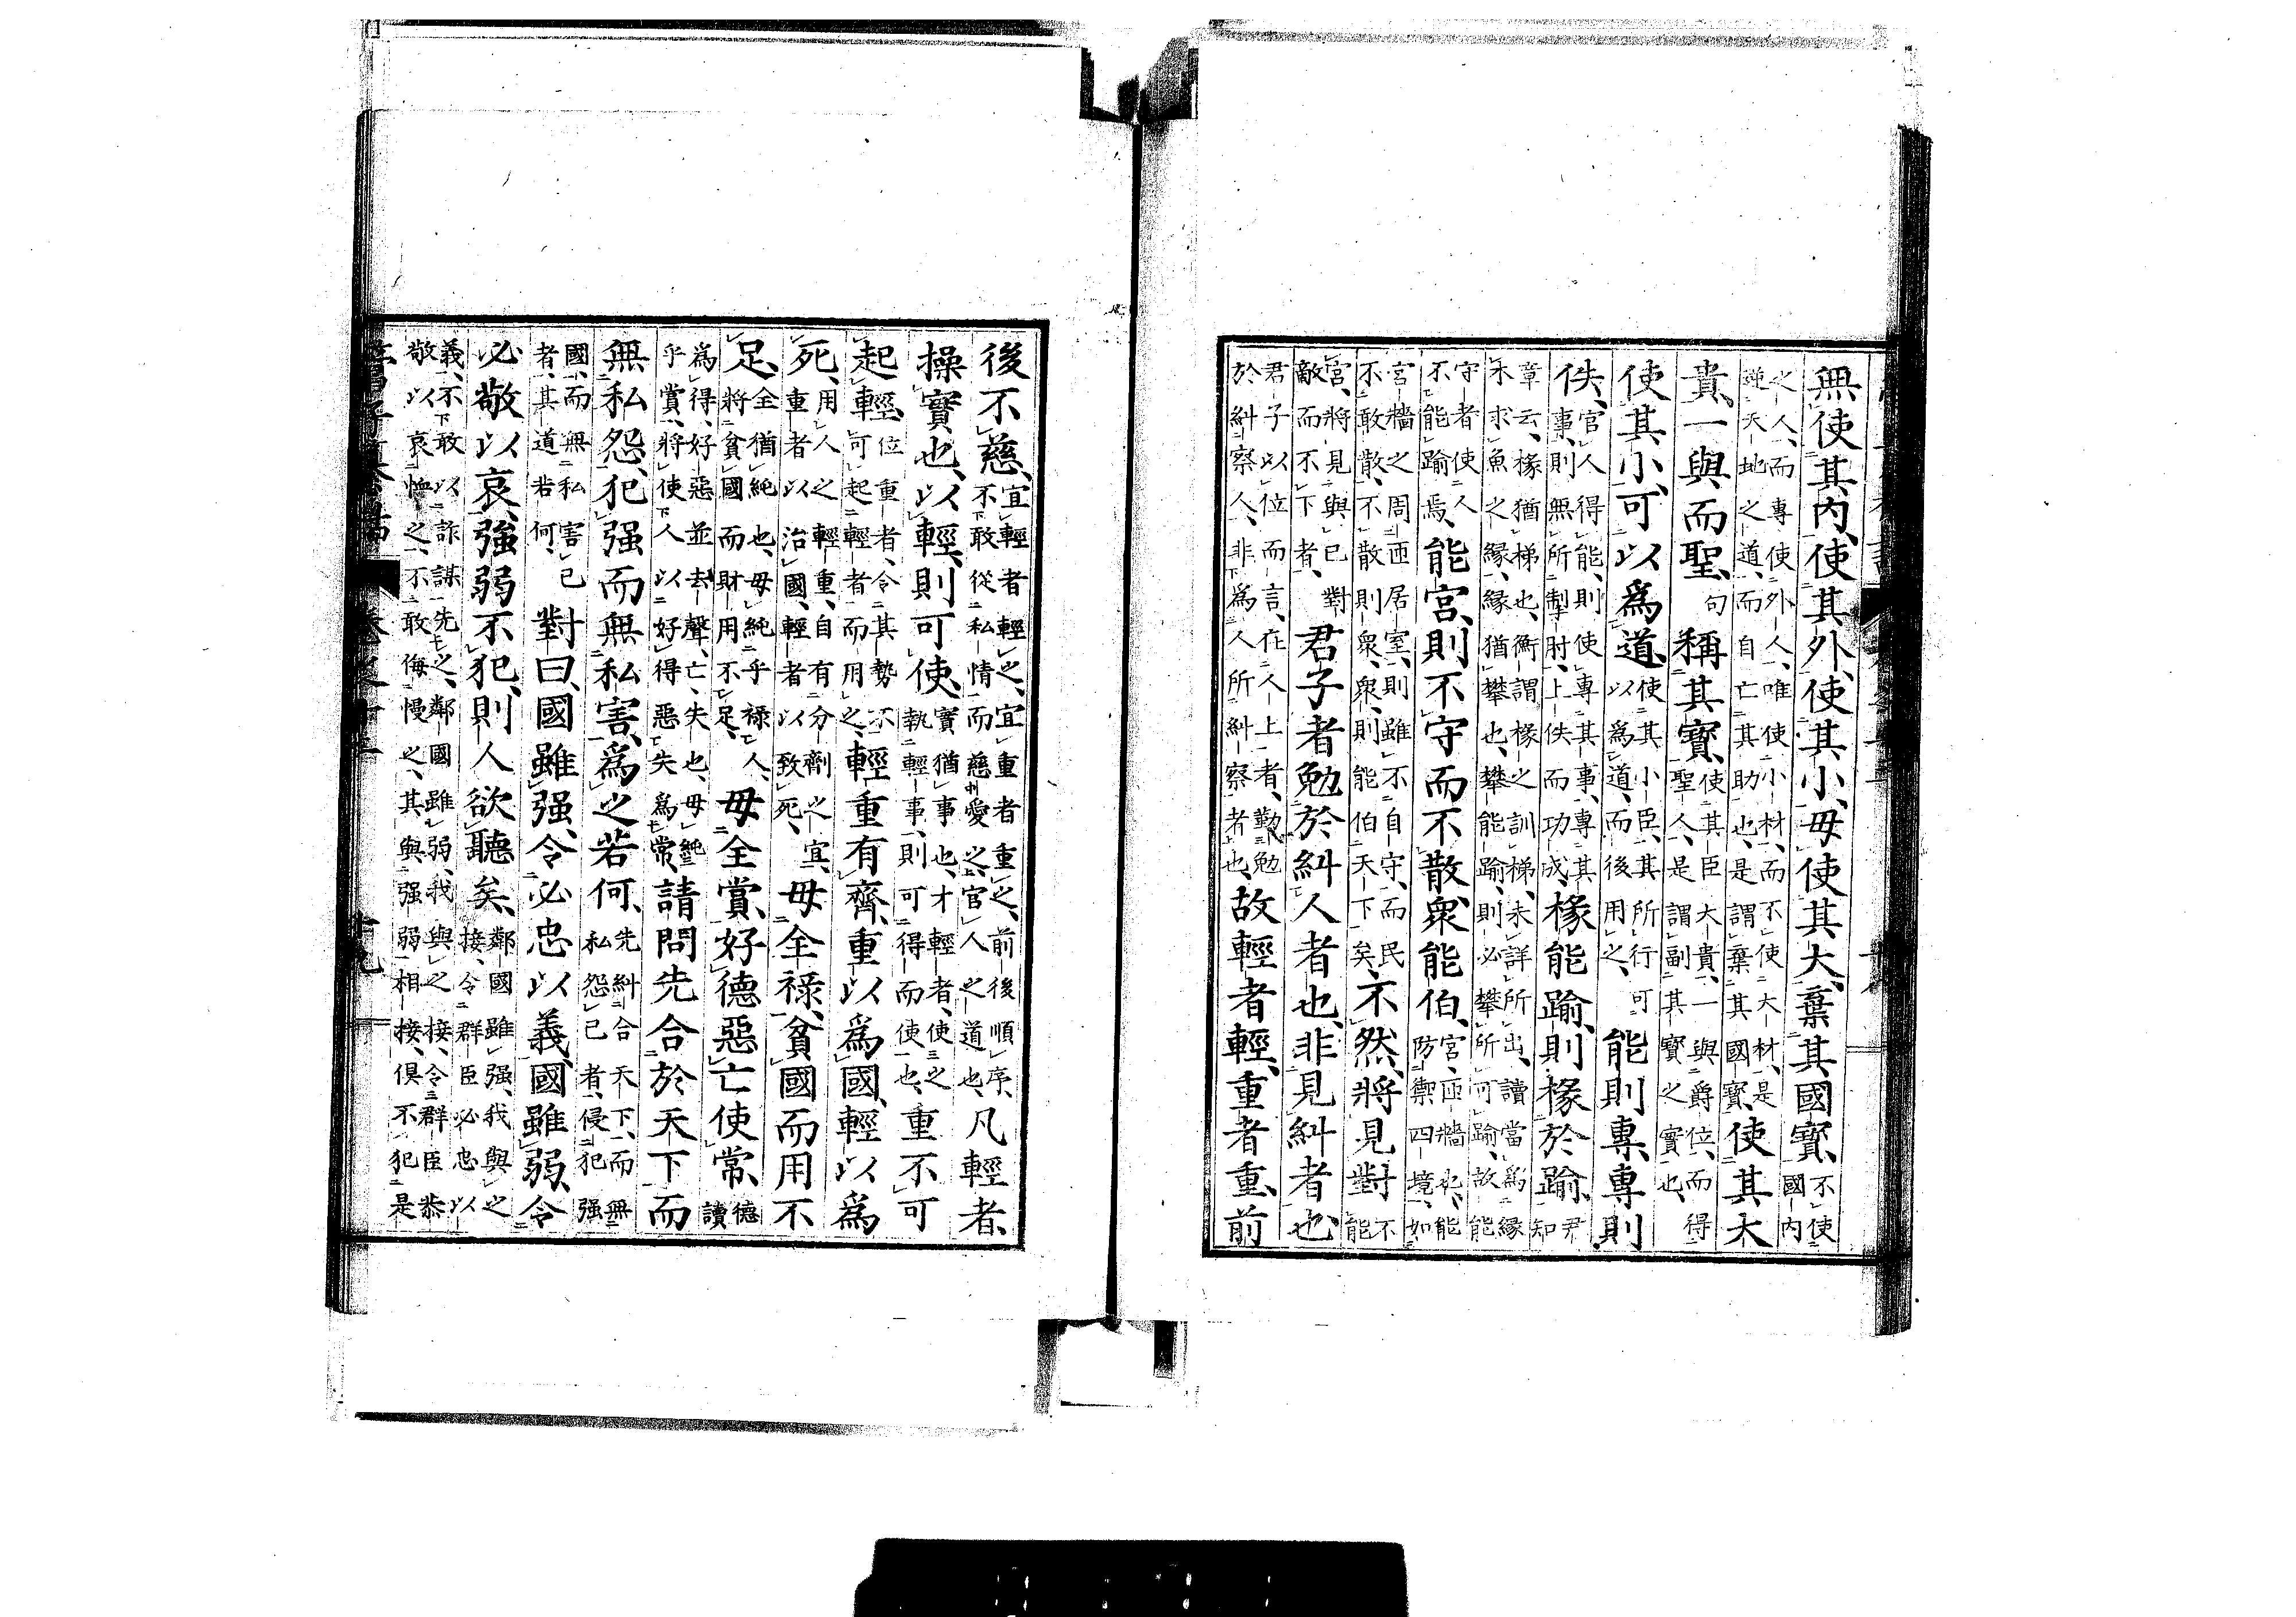 無使其內、使其外、使其小、毋使其大、棄其國寶、不使國內
之人、而專使外人、唯使小材、而不使大材、是逆天地之道、而自亡其助也、是謂棄其國寶、使其大
貴、一與而聖、句稱其寶、使其臣大貴、一與爵位、而得聖人、是謂副其寶之實也、
使其小、可以爲道、使其小臣、其所行可以爲道、而後用之、能則專、專則
佚、官人得能、則使專其事、專其事、則無所掣肘、上佚而功成、椽能踰、則椽於踰、尹知
章云、椽猶梯也、衡謂椽之訓梯、未詳所出、讀當爲緣木求魚之緣、緣猶攀也、攀能踰、則必攀所可踰、故能
守者使人不能踰焉、能宮、則不守而不散、衆能伯、宮、匝牆也、能防禦四境、如
宮牆之周匝居室、則雖不自守、而民不敢散、不散則衆、衆則能伯天下矣、不然、將見對、不能
宮、將見與己對敵而不下者、君子者、勉於糾人者也、非見糾者也、
君子以位而言、在人上者、勤勉於糾察人、非爲人所糾察者也、故輕者輕、重者重、前
後不慈、宜輕者輕之、宜重者重之、前後順序、不敢從私情而慈愛之、官人之道也、凡輕者、
操實也、以輕、則可使、實猶事也、才輕者、使之執輕事、則可得而使也、重不可
起輕、位重者、令其勢不可起輕者而用之、輕重有齊、重以爲國、輕以爲
死、用人之輕重、自有分劑之宜、重者以治國、輕者以致死、毋全祿、貧國而用不
足、全猶純也、毋純乎祿人、將貧國而財用不足、毋全賞、好德惡亡使常、德讀
爲得、好惡並去聲、亡、失也、毋純乎賞、將使人以好得惡失爲常、請問先合於天下而
無私怨、犯强而無私害、爲之若何、先糾合天下、而無私怨己者、侵犯强
國、而無私害己者、其道若何、對曰、國雖强、令必忠以義、國雖弱、令
必敬以哀、強弱不犯、則人欲聽矣、鄰國雖强、我與之接、令群臣必忠以
義、不敢以詐謀先之、鄰國雖弱、我與之接、令群臣恭敬以哀恤之、不敢侮慢之、其與强弱相接、俱不犯、是